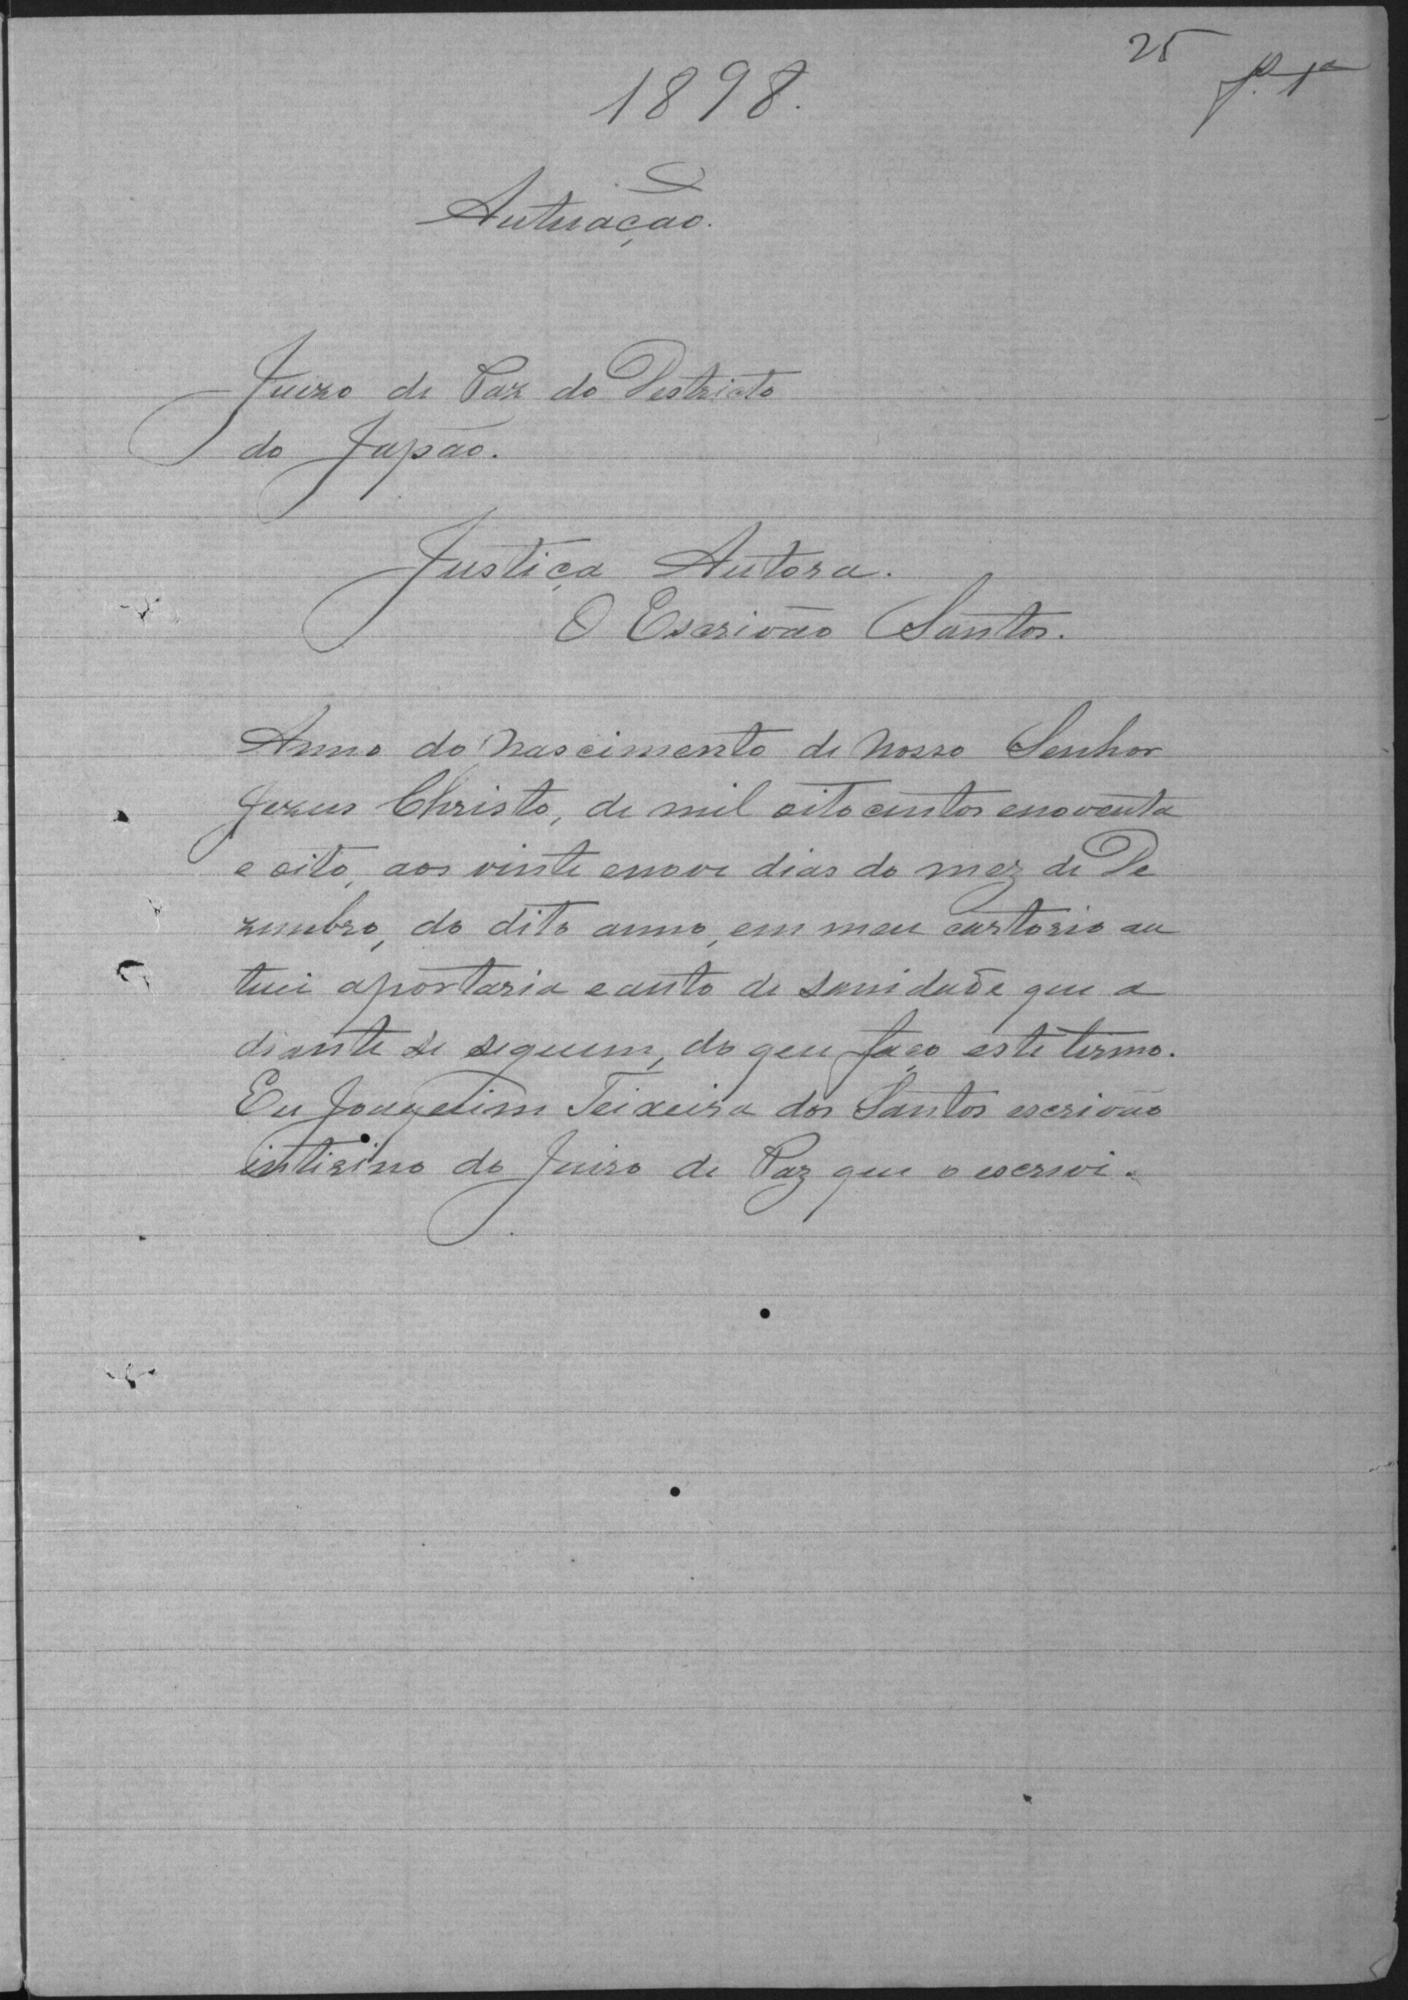 25
f. 1ª
1898.
Autuação.
Juizo de Paz do Destricto
do Japão.
Justiça Autora.
O Escrivão Santos.
Anno do Nascimento de Nosso Senhor
Jezus Christo, de mil oito centos enoventa
e oito, aos vinte enove dias do mez de De
zembro, do dito anno, em meu cartorio au
tuei aportaria eauto de sanidade que a
diante se seguem, do que faço este termo.
Eu Joaquim Teixeira dos Santos escrivão
interino do Juizo de Paz que o escrevi.